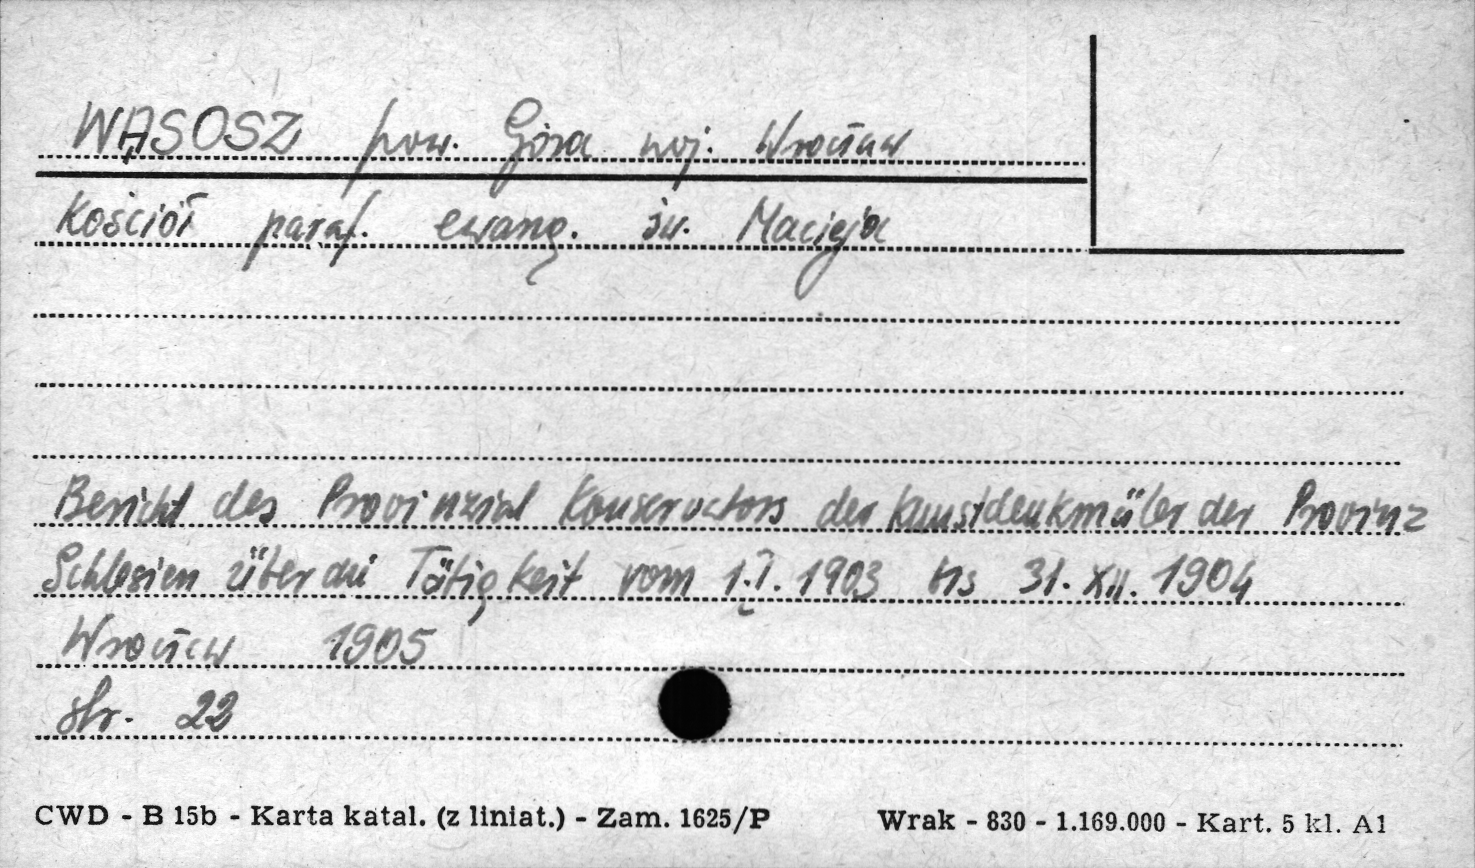 WĄSOSZ pow. Góra woj. Wrocław
Kościół paraf. ewang. św. Macieja
Bericht des Provinzial Konservators der Kunstdenkmäler der Provinz
Schlesien über die Tätigkeit vom 1.I. 1903 bis 31. XII. 1904
Wrocław 1905
str. 22
CWD - B 15b - Karta katal. (z liniat.) - Zam. 1625/P Wrak - 830 - 1.169.000 - Kart. 5 kl. A1